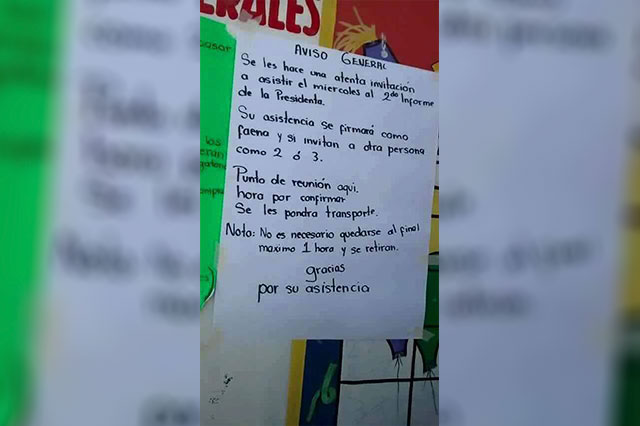 ERALES
AVISO GENERAL
Se les hace una atenta invitación
a asistir el miercoles al 2do Informe
de la Presidenta.
Su asistencia se firmará como
faena y si invitan a otra persona
como 2 ó 3.
Punto de reunión aqui.
hora por confirmar
Se les pondra transporte.
Nota: No es necesario quedarse al final
maximo 1 hora y se retiran.
gracias
por su asistencia